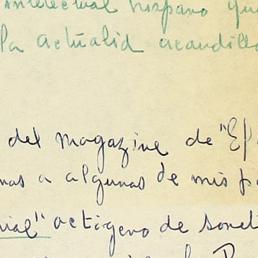 intelectual hispano qu
la actualid acaudilla
del magazine de "Ep
nas a algunas de mis p
octógeno de soneti